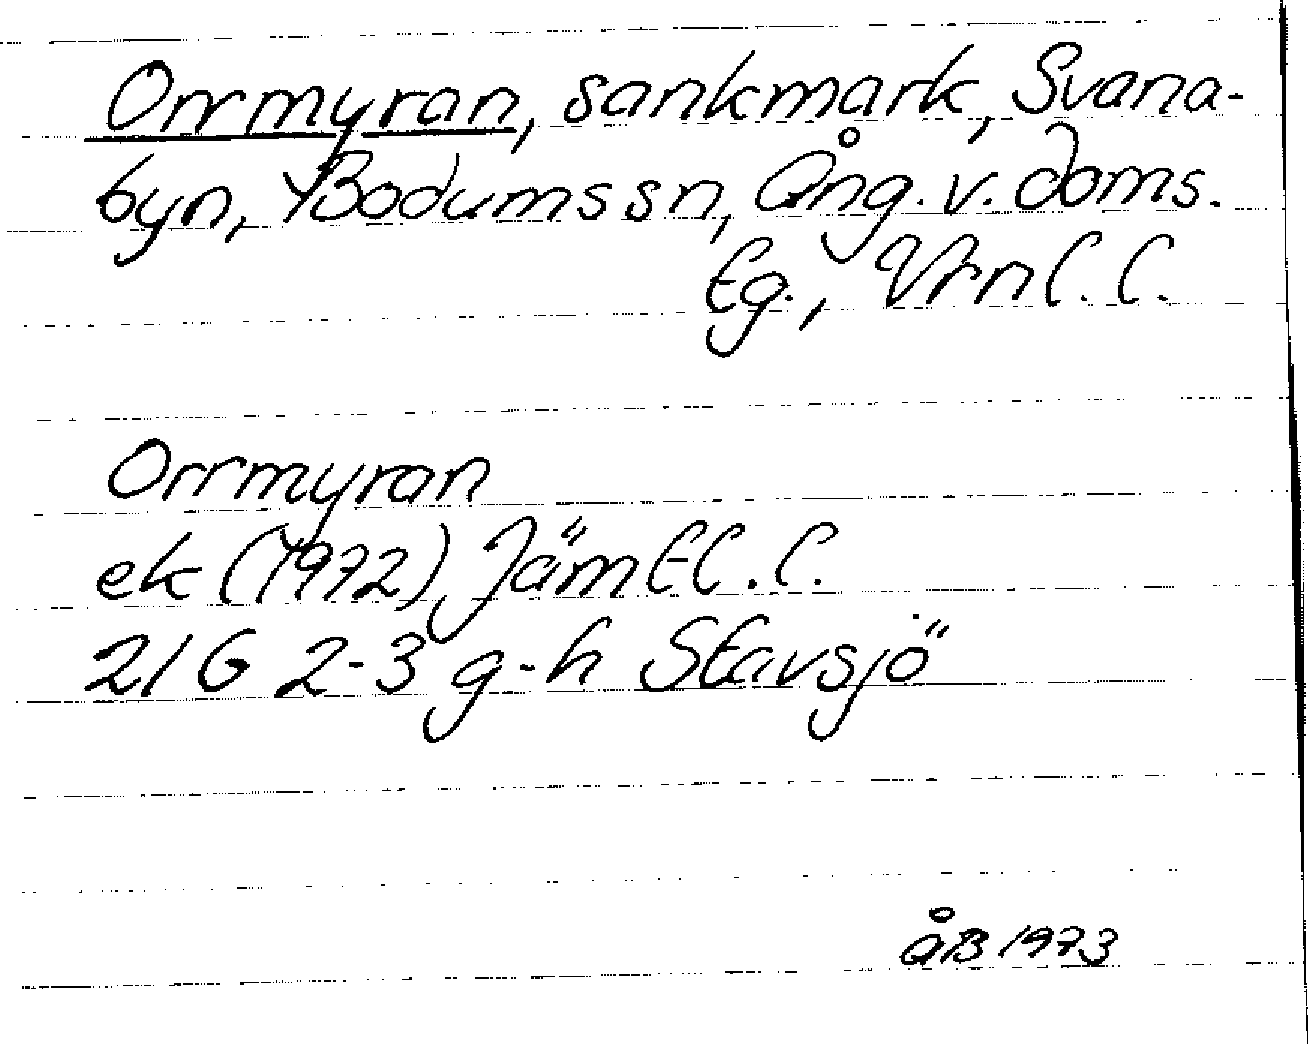 Orrmyran, sankmark, Svana-
byn, Bodums sn, Ång. v. doms.
tg., Vrnl. l.
Orrmyran
ek (1972), Jämtl. l.
21G 2-3 g-h Stavsjö
ÅB 1973